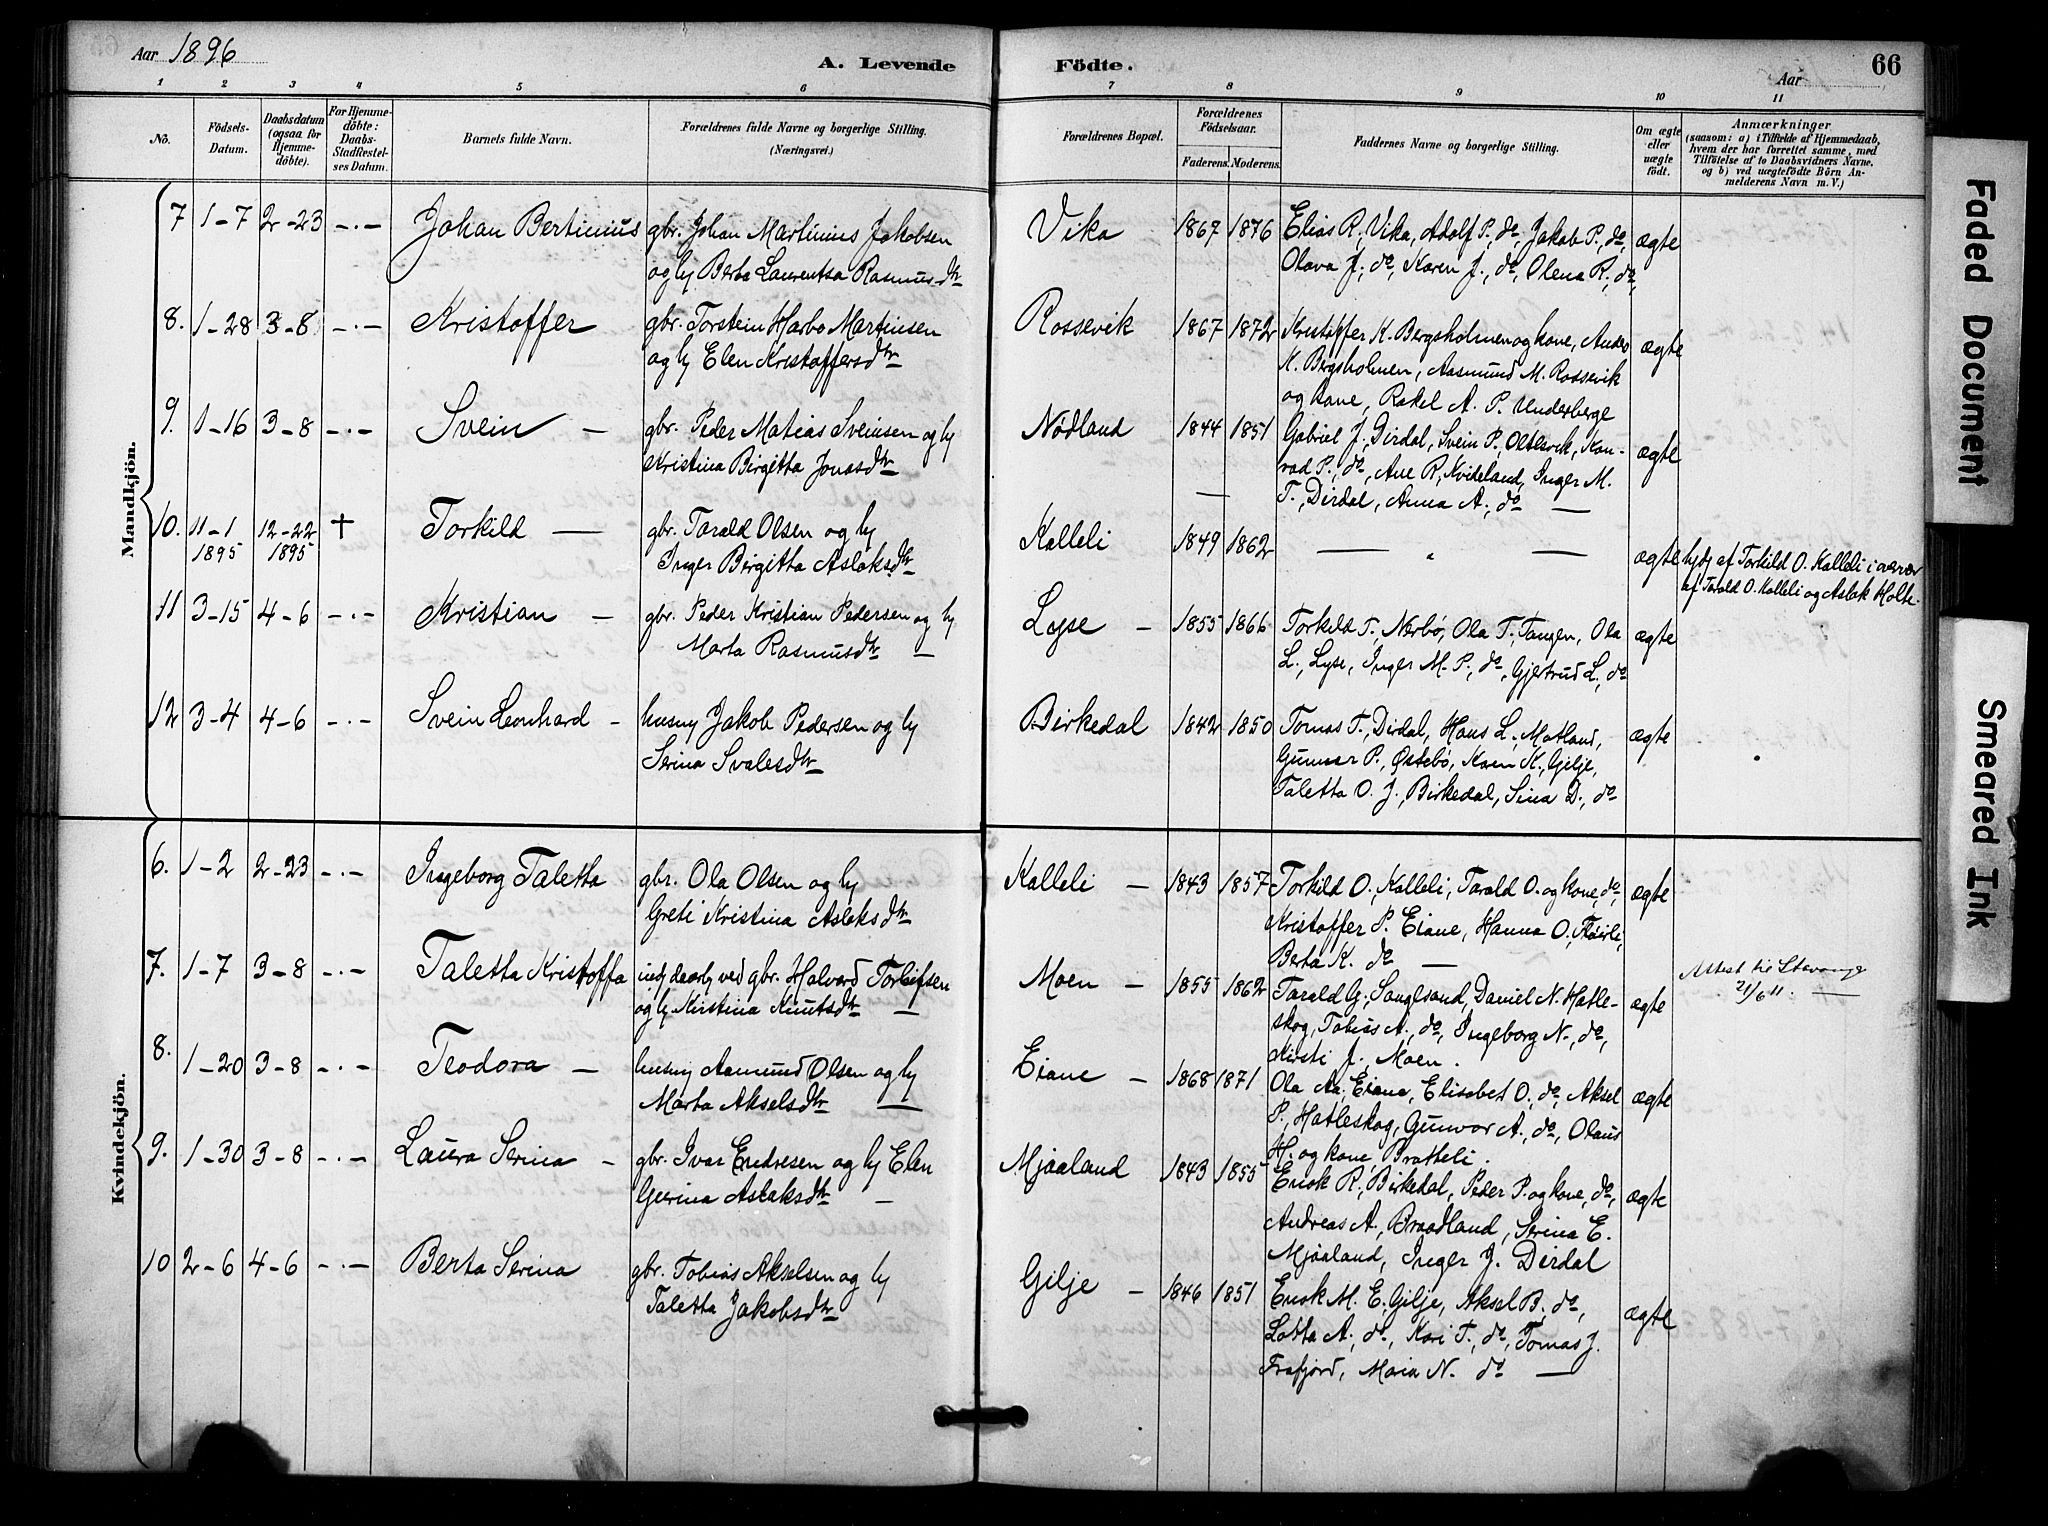 Aar 1896
A. Levende
Födte.
Aar
66
1 2 3 4 5 6 7 8 9 10 11
No.
Födsels-Datum.
Daabsdatum (ogsaa for Hjemme-döbte).
For Hjemme-döbte: Daabs-Stadfæstel-ses Datum.
Barnets fulde Navn.
Forældrenes fulde Navne og borgerlige Stilling. (Næringsvei.)
Forældrenes Bopæl.
Forældrenes Födselsaar.
Faderens. Moderens.
Faddernes Navne og borgerlige Stilling.
Om ægte eller uægte födt.
Anmærkninger
(saasom: a) i Tilfælde af Hjemmedaab,
hvem der har forrettet samme, med
Tilföielse af to Daabsvidners Navne,
og b) ved uægtefödte Börn An-
melderens Navn m. V.)
Mandkjön.
7 1-7 2-23 -.- Johan Bertinius gbr. Johan Martinius Jakobsen
og hj Berta Laurentsa Rasmusdtr
Vika 1867 1876 Elias R., Vika, Adolf P., do, Jakob P., do,
Olava J., do, Karen J., do, Olena R., do,
ægte
8. 1-28 3-8 -.- Kristoffer gbr. Torstein Harbo Martinsen
og hj Elen Kristoffersdtr
Rossevik 1867 1872 Kristoffer K. Bergsholmen og kone, Anders
K. Bergsholmen, Aasmund M. Rossevik
og kone, Rakel A. P. Underberge
ægte
9. 1-16 3-8 -.- Svein — gbr. Peder Matias Sveinsen og hj
Kristina Birgitta Jonasdtr
Nödland 1844 1851 Gabriel J., Dirdal, Svein P. Oltesvik, Kon-
rad P., do, Ane R, Kvideland, Inger M.
T., Dirdal, Anna A., do —
ægte
10. 11-1 1895 12-22 1895 † Torkild — gbr. Tarald Olsen og hj
Inger Birgitta Aslaksdtr
Kalleli 1849 1862 — " —
ægte hjdg af Torkild O. Kalleli i nærvær
af Tarald O. Kalleli og Aslak Holte.
11 3-15 4-6 -.- Kristian — gbr. Peder Kristian Pedersen og hj
Marta Rasmusdtr —
Lyse — 1855 1866 Torkild T. Nerbö, Ola T., Tangen, Ola
L., Lyse, Inger M. P., do, Gjertrud L., do
ægte
12 3-4 4-6 -.- Svein Leonhard — husm Jakob Pedersen og hj
Serina Svalesdtr
Birkedal 1842 1850 Tomas T., Dirdal, Hans L., Matland,
Gunnar P., Östebö, Karen K., Gilje,
Taletta O. J., Birkedal, Sina D., do
ægte
Kvindekjön.
6. 1-2 2-23 -.- Ingeborg Taletta gbr. Ola Olsen og hj
Greti Kristina Aslaksdtr
Kalleli — 1843 1857 Torkild O., Kalleli, Tarald O. og kone, do,
Kristoffer P. Eiane, Hanna O., Flöirli,
Berta K. do —
ægte
7. 1-7 3-8 -.- Taletta Kristoffa indj daarlig ved gbr. Halvard Torleifsen
og hj Kirstina Knutsdtr —
Moen — 1855 1862 Tarald G., Songesand, Daniel N. Hatle-
skog, Tobias A., do, Ingeborg N., do,
Kirsti J., Moen.
ægte Attest til Stavanger
21/6 11. —
8. 1-20 3-8 -.- Teodora — husm Aamund Olsen og hj
Marta Akselsdtr —
Eiane — 1868 1871 Ola Aa, Eiane, Elisabet O., do, Aksel
P., Hatleskog, Gunvor A., do, Olaus
H. og kone Bratteli.
ægte
9. 1-30 3-8 -.- Laura Serina — gbr. Ivar Endresen og hj Elen
Gurina Aslaksdtr —
Mjaaland 1843 1855 Enok R., Birkedal, Peder P. og kone, do,
Andreas A., Braadland, Serina E.
Mjaaland, Inger J. Dirdal
ægte
10 2-6 4-6 -.- Berta Serina gbr. Tobias Akselsen og hj
Taletta Jakobsdtr
Gilje — 1846 1851 Enok M. E. Gilje, Aksel B., do,
Lotta A., do, Kari T., do, Tomas J.
Frafjord, Maria N. do —
ægte
Faded Document
Smeared Ink